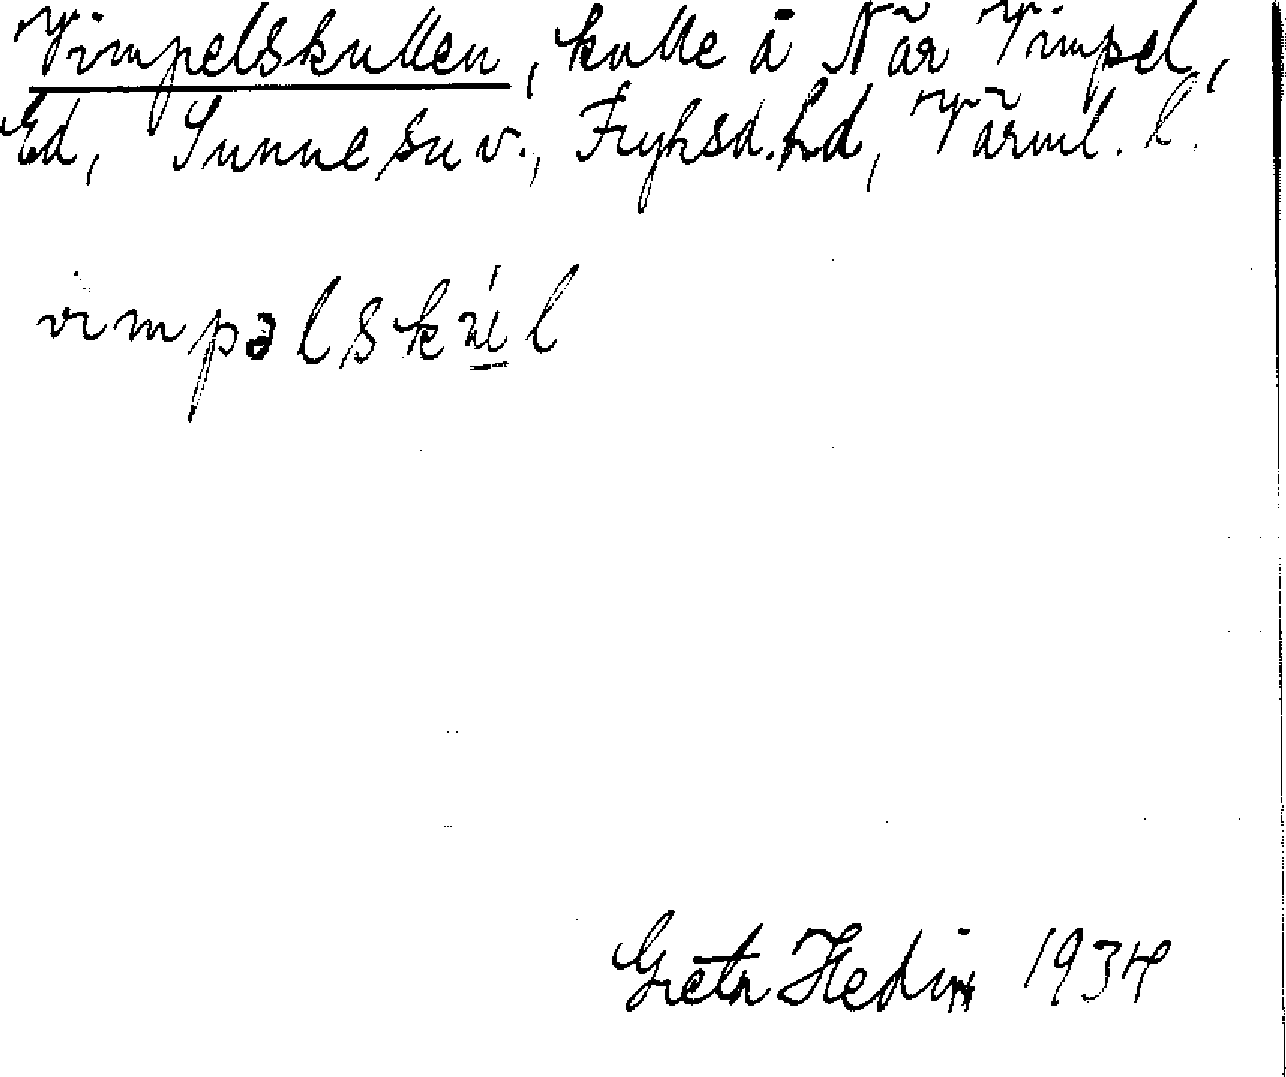 Vimpelskullen, kulle å När Vimpel,
Ed, Sunne sn v., Fryksd. hd, Värml. l.
vimpəlskúl
Greta Hedin 1934